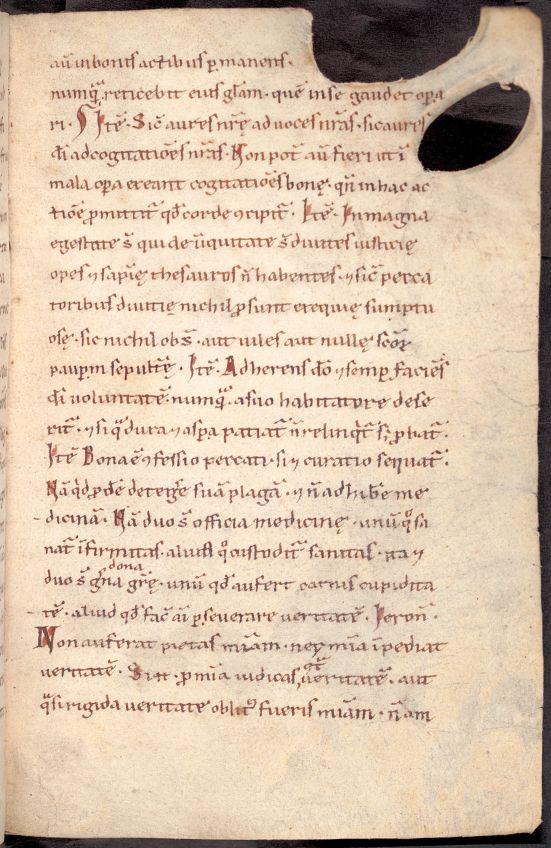 aū in bonis actibus ꝑmanens·
nūmqͣ reticebit eius gl̄am· quē in se gaudet oꝑa
ri· Itē· Sic̄ aures nr̄ę ad voces nr̄as· sic aures
dī ad cogitatiōes nr̄as· Non pot̄ aū fieri ut ī
mala oꝑa ereant cogitatiōes bonę· qn̄ in hac ac
tiōe ꝓmittit̄ qd̄ corde ⁊cipit̄· Itē· In magna
egestate s̄ qui de īiquitate s̄ diuites iusticię
opes ⁊ sapīę thesauros n̄ habentes· ⁊ sic̄ pecca
toribus diuitię nichil ꝓsunt exequię sumptu
osę· sic nichil obs̄· aut uiles aut nullę sc̄oꝝ
pauꝑm sepultrē· Itē· Adherens dō ⁊ semꝑ faciēs
dī voluntatē numqͣ· a suo habitatore dese
rit̄· ⁊ si qͣ dura ⁊ asꝑa patiat̄ n̄ relinqt̄ s; ꝓbat̄·
Itē Bona ē ⁊fessio peccati· si ⁊ curatio sequat̄·
Nā qd ꝓdē detegͤre suā plagā· ⁊ n̄ adhibͤe me
dicinā· Nā duo s̄ officia medicinę· unū qͦ sa
nat̄ īfirmitas· aliud qͦ custodit̄ sanitas· ita ⁊
duo s̄ gͣna dona grę̄· unū qd̄ aufert carnis cupidita
tē· aliud qd̄ fac̄ aī ꝑseuerare veritatē· Ieron̄·
Non auferat pietas mīam· neq; mīa īpediat
veritatē· Si n̄· ꝓ mīa iudicas c̄t̄ veritatē· aut
qͣsi rigida veritate oblitꝰ fueris mīam· n̄ am